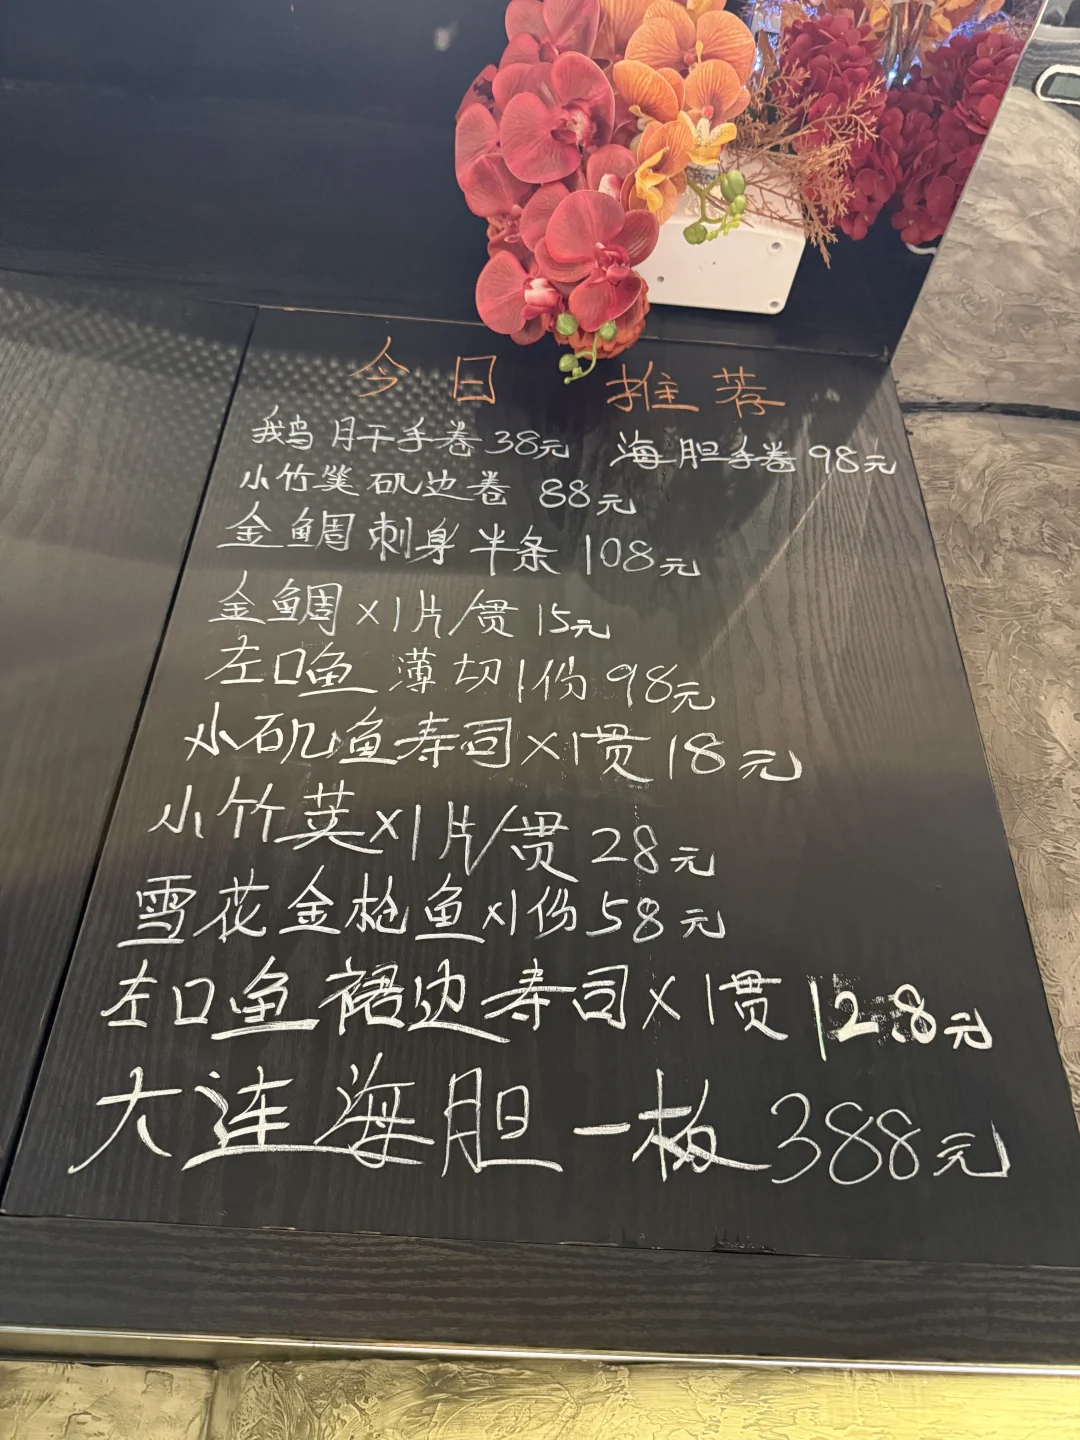 今日 推荐
鹅肝手卷38元 海胆手卷98元
小竹荚矶边卷 88元
金鲷刺身半条 108元
金鲷×1片/贯 15元
左口鱼 薄切1份 98元
小矶鱼寿司×1贯 18元
小竹荚×1片/贯 28元
雪花金枪鱼×1份58元
左口鱼裙边寿司×1贯 12.8元
大连海胆一板 388元